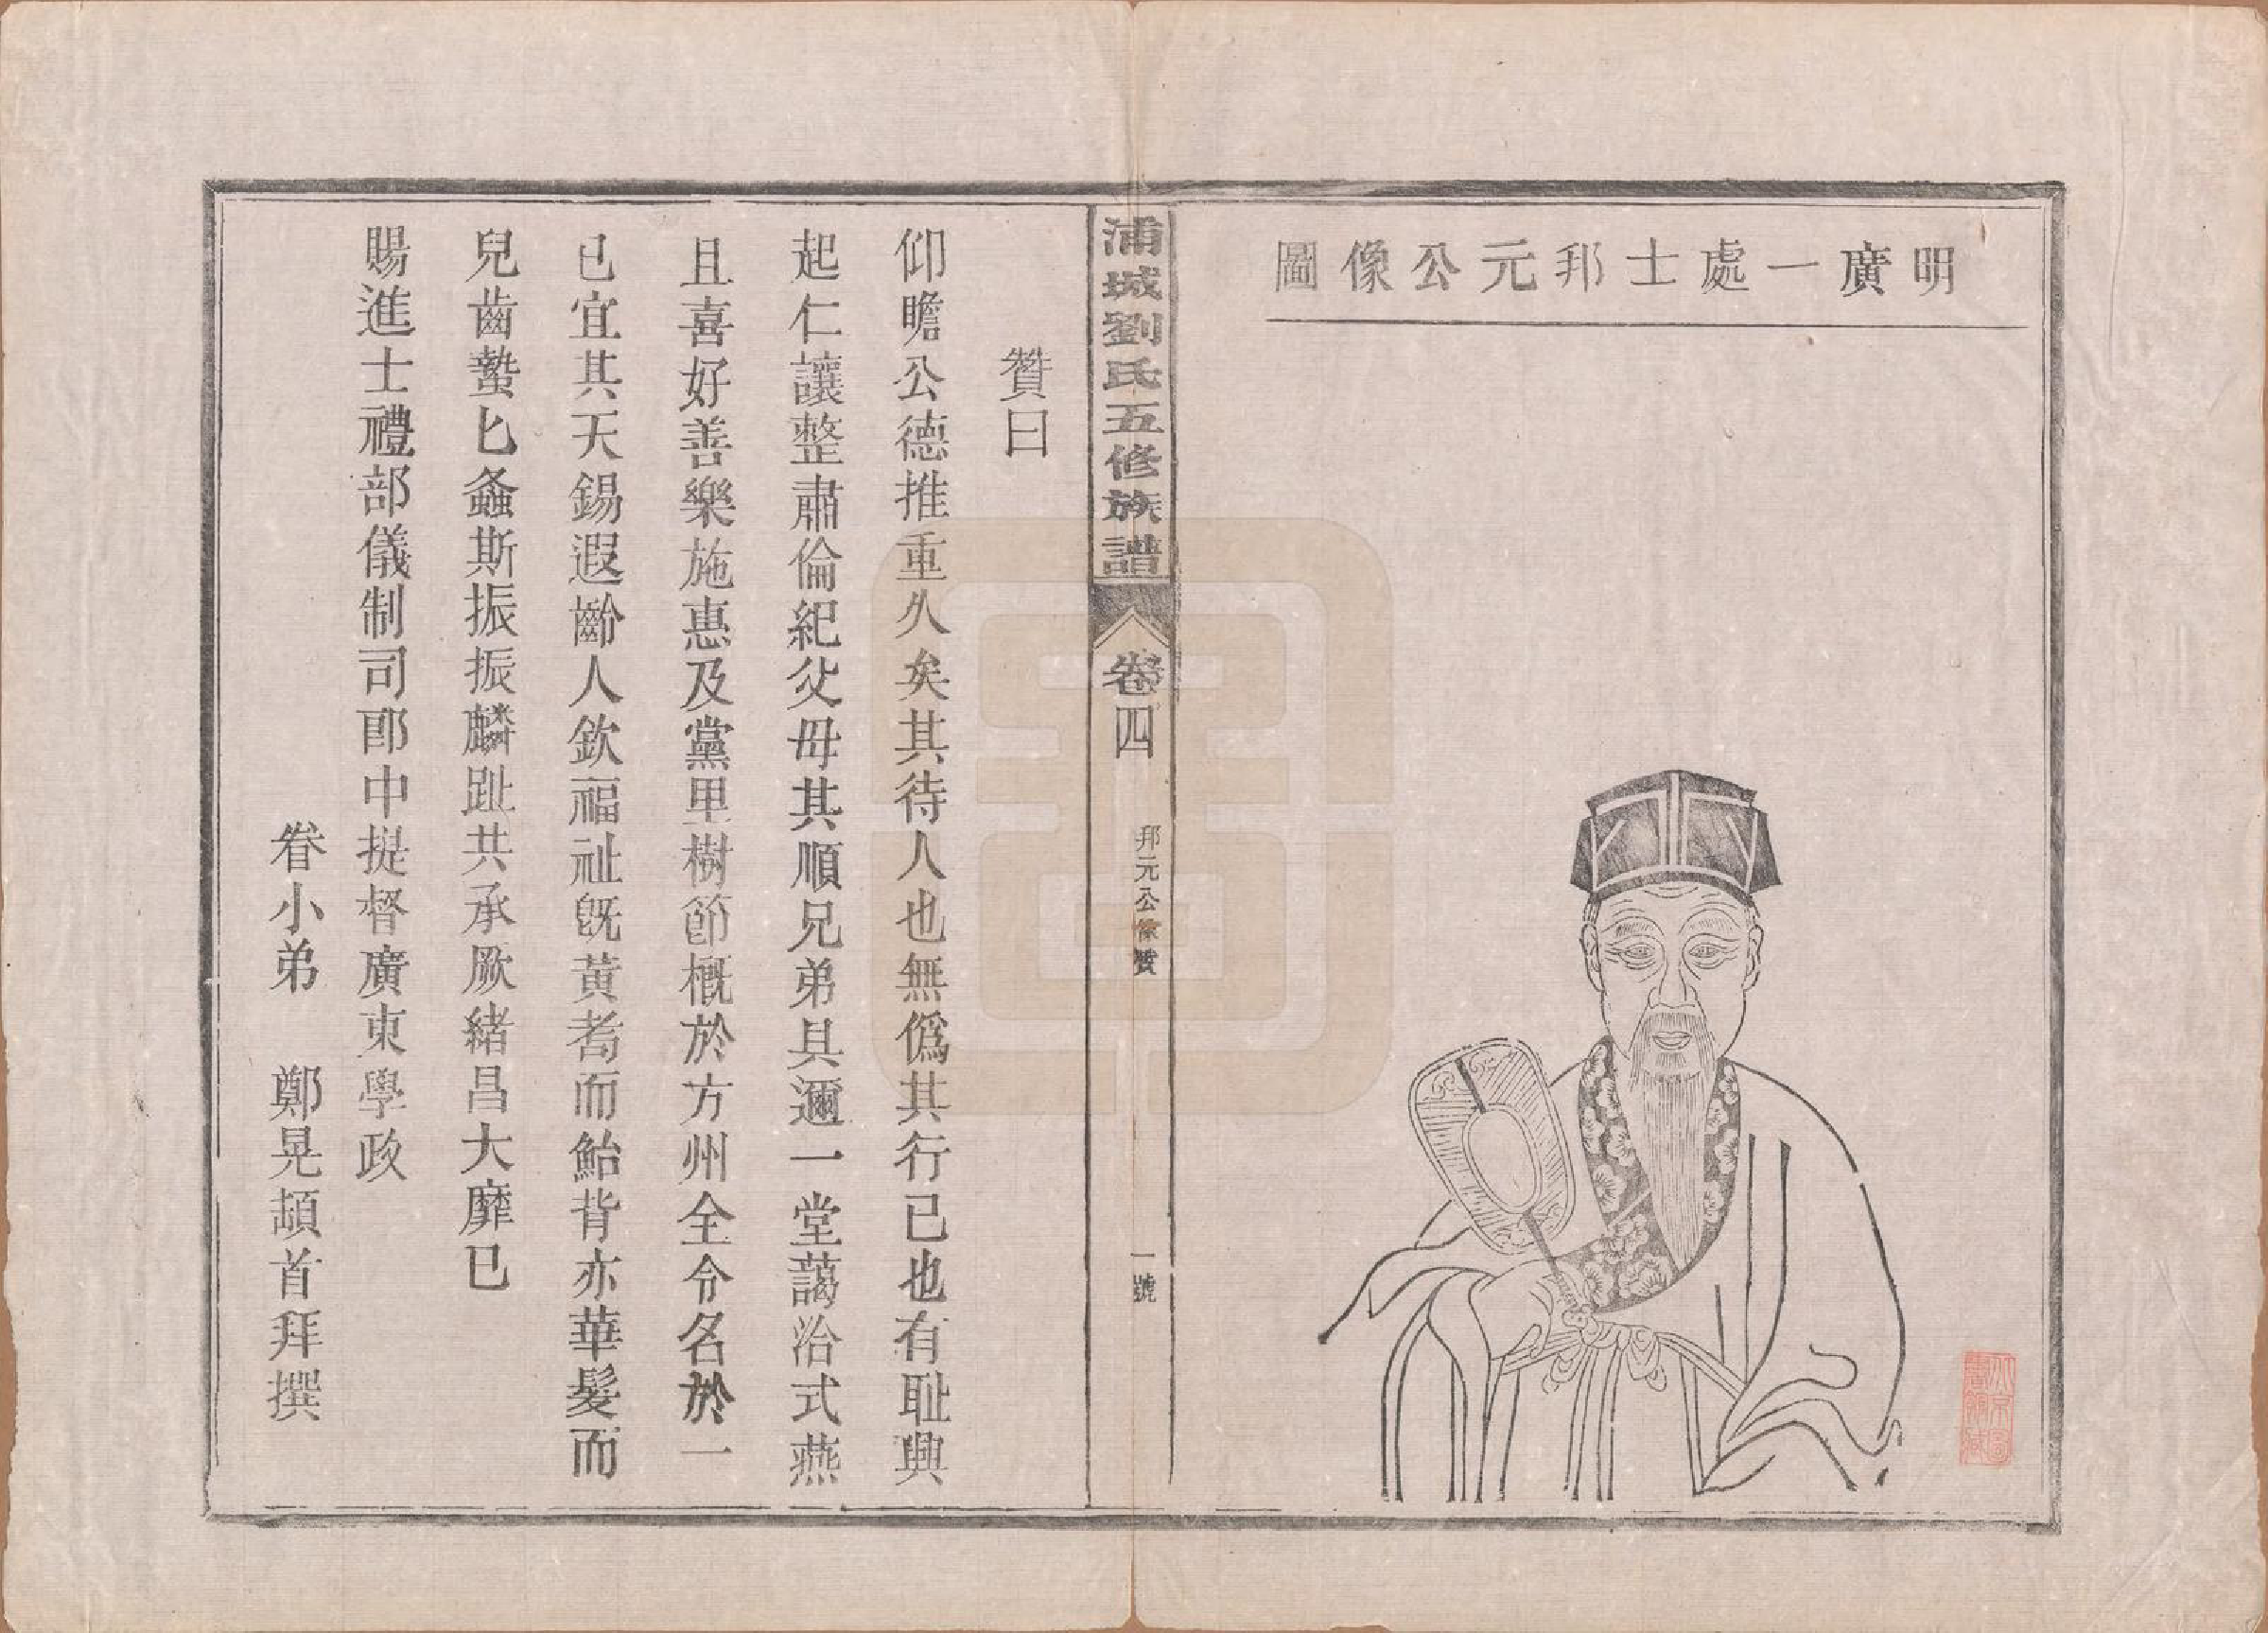 明廣一處士邦元公像圖
浦城劉氏五修族譜
卷四
邦元公像贊
一號
贊曰
仰瞻公德推重久矣其待人也無僞其行已也有耻興
起仁讓整肅倫紀父母其順兄弟具邇一堂藹洽式燕
且喜好善樂施惠及黨里樹節概於方州全令名於一
已宜其天錫遐齡人欽福祉旣黃耉而鮐背亦華髮而
兒齒蟄匕螽斯振振麟趾共承厥緒昌大靡已
賜進士禮部儀制司郎中提督廣東學政
眷小弟 鄭晃頓首拜撰